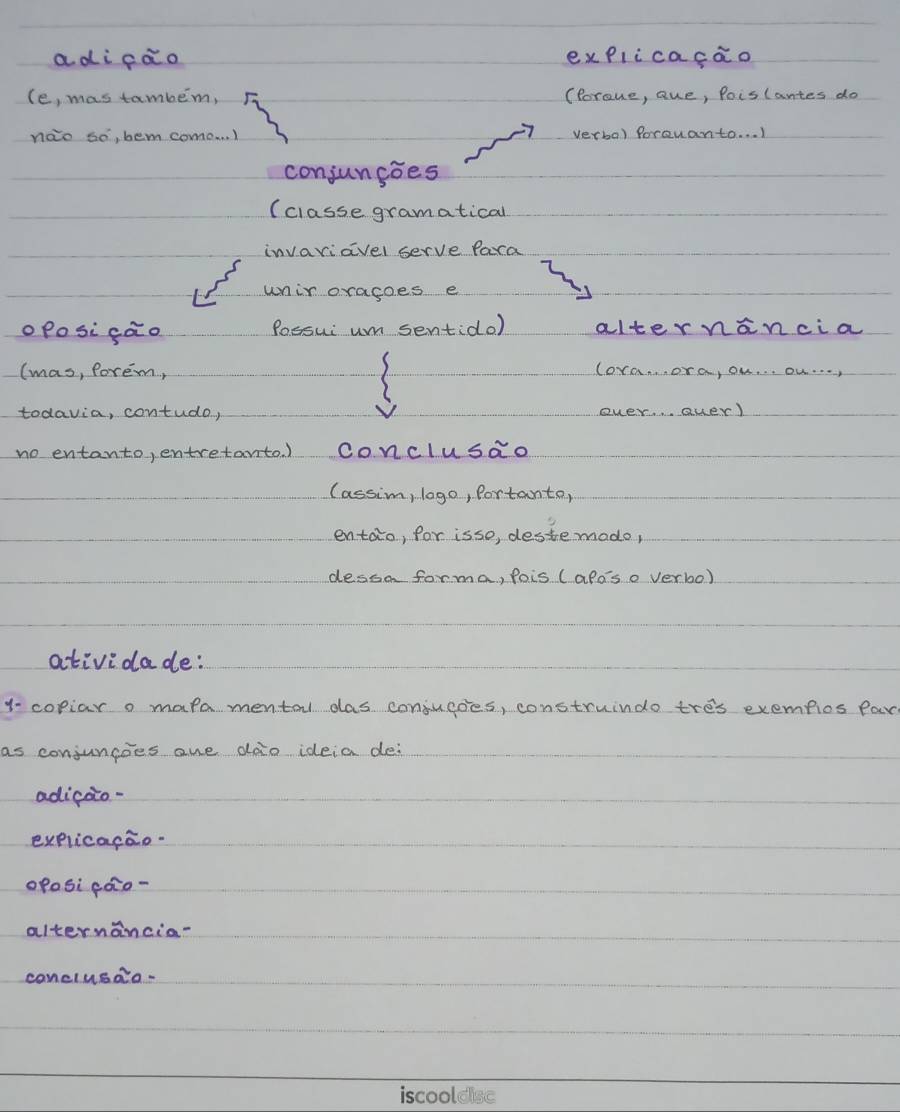 adição
(e, mas também,
não só, bem como...)
explicação
(Porque, que, Pois (antes do
verbo) Porquanto...)
conjunções
(classe gramatical
invariável serve Para
unir orações e
Possui um sentido)
oposição
(mas, Porém,
todavia, contudo,
no entanto, entretanto.)
alternância
(ora...ora, ou...ou...,
quer...quer)
conclusão
(assim, logo, Portanto,
então, Por isso, deste modo,
dessa forma, Pois (após o verbo)
atividade:
1- copiar o mapa mental das conjuções, construindo três exemplos Par
as conjunções que dão ideia de:
adição-
explicação-
oposição-
alternância-
conclusão-
iscool disc